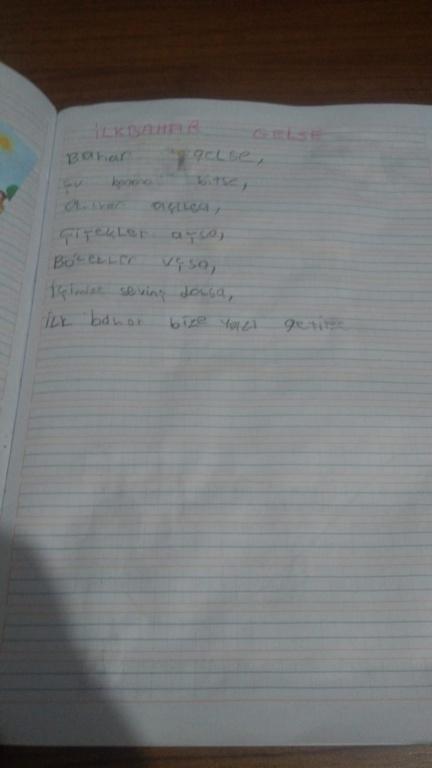 İLKBAHAR GELSE
Bahar gelse,
Şu bitse,
açılsa,
Çiçekler açsa,
Böcekler uçsa,
İçimize sevinç dolsa,
İlk bahar bize yazı getirse